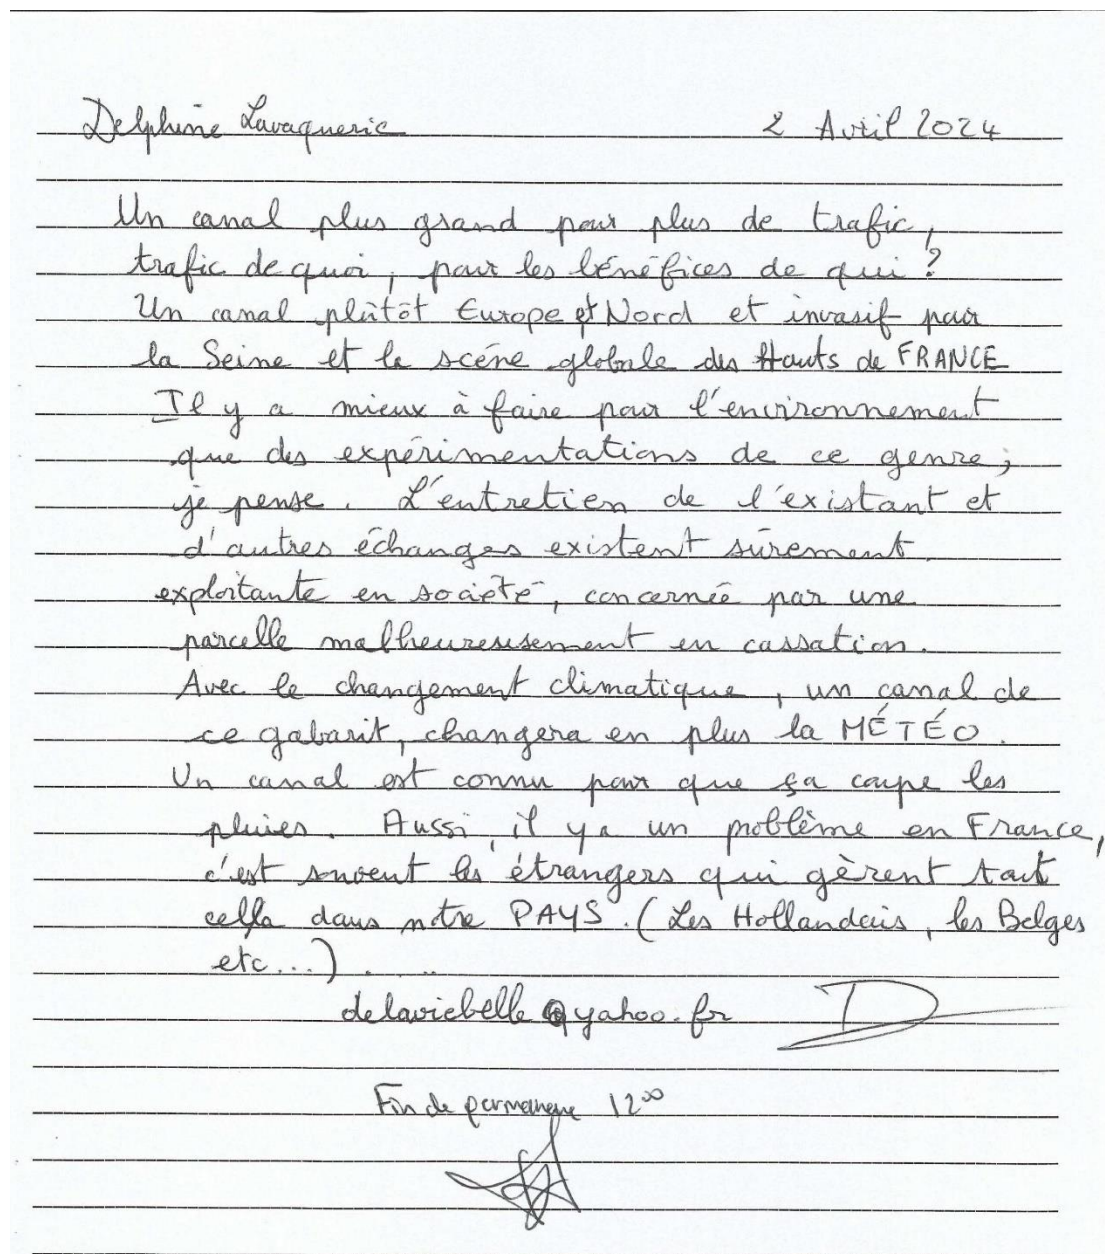 Delphine Lavaquerie
2 Avril 2024
Un canal plus grand pour plus de trafic,
trafic de quoi, pour les bénéfices de qui ?
Un canal plutôt Europe et Nord et invasif pour
la Seine et la scène globale des Hauts de FRANCE
Il y a mieux à faire pour l'environnement
que des expérimentations de ce genre,
je pense. L'entretien de l'existant et
d'autres échanges existent sûrement.
exploitante en société, concernée par une
parcelle malheureusement en cassation.
Avec le changement climatique, un canal de
ce gabarit, changera en plus la MÉTÉO.
Un canal est connu pour que ça coupe les
pluies. Aussi, il y a un problème en France,
c'est souvent les étrangers qui gèrent tout
cella dans notre PAYS. (Les Hollandais, les Belges
etc...)...
delaviebelle@yahoo.fr D
Fin de permanence 12°°